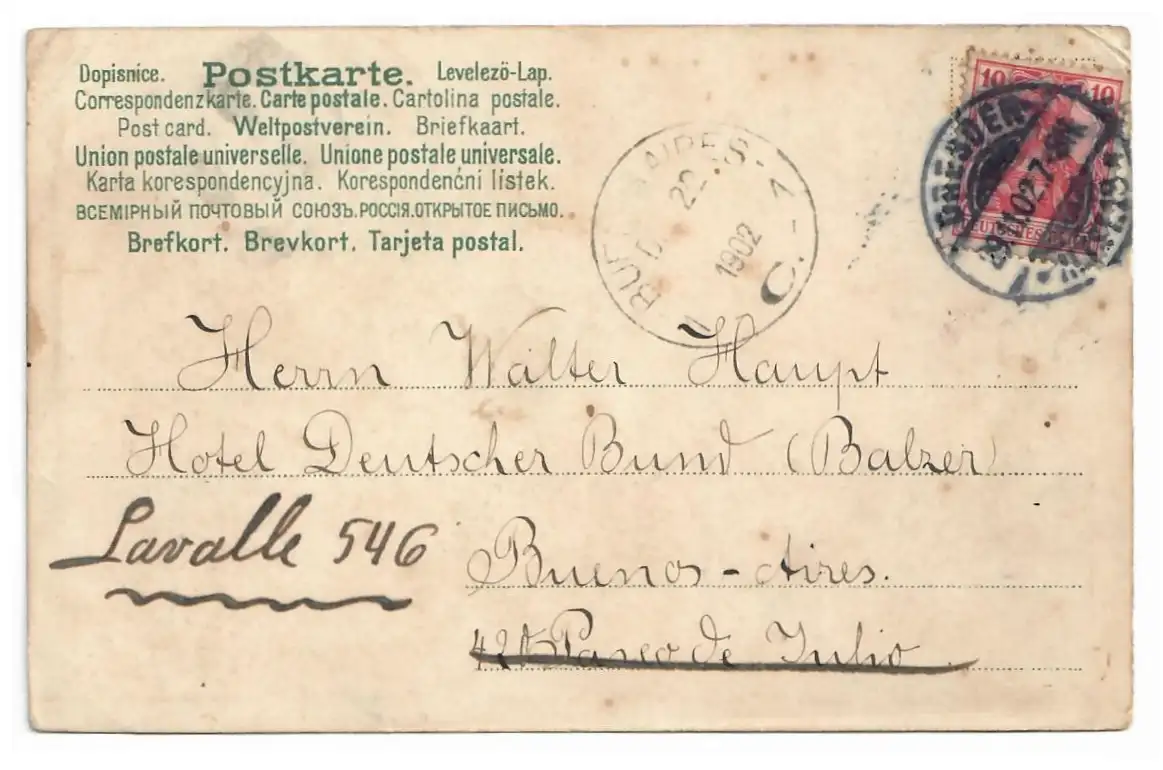 Dopisnice. Postkarte. Levelező-Lap.
Correspondenzkarte. Carte postale. Cartolina postale.
Post card. Weltpostverein. Briefkaart.
Union postale universelle. Unione postale universale.
Karta korespondencyjna. Korespondenční listek.
ВСЕМІРНЫЙ ПОЧТОВЫЙ СОЮЗЪ. РОССІЯ. ОТКРЫТОЕ ПИСЬМО.
Brefkort. Brevkort. Tarjeta postal.
10 10
DEUTSCHES
DRESDEN
02.7
BUENOS AIRES
22
1902
1
C.
Herrn Walter Haupt
Hotel Deutscher Bund (Balzer)
Lavalle 546
Buenos-Aires.
Paseo de Julio